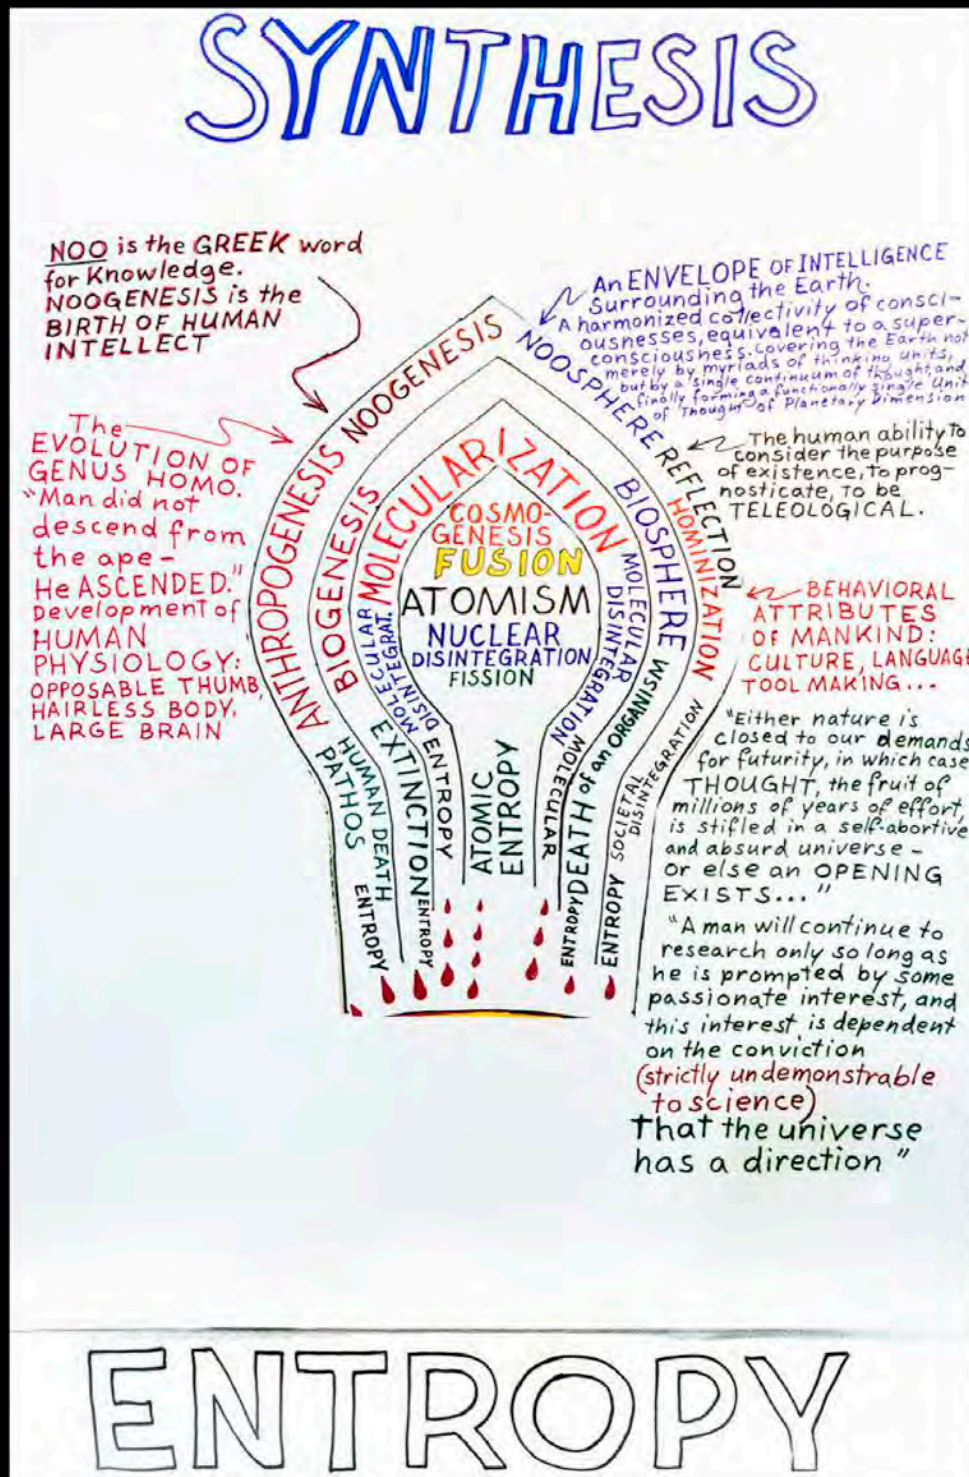 SYNTHESIS
NOO is the GREEK word
for Knowledge.
NOOGENESIS is the
BIRTH OF HUMAN
INTELLECT
The
EVOLUTION OF
GENUS HOMO.
"Man did not
descend from
the ape-
He ASCENDED."
Development of
HUMAN
PHYSIOLOGY:
OPPOSABLE THUMB,
HAIRLESS BODY,
LARGE BRAIN
An ENVELOPE OF INTELLIGENCE
Surrounding the Earth.
A harmonized collectivity of consci-
ousnesses, equivalent to a super-
consciousness. Covering the Earth not
merely by myriads of thinking units,
but by a single continuum of thought, and
finally forming a functionally single Unit
of Thought of Planetary Dimension
The human ability to
consider the purpose
of existence, to prog-
nosticate, to be
TELEOLOGICAL.
BEHAVIORAL
ATTRIBUTES
OF MANKIND:
CULTURE, LANGUAGE
TOOL MAKING...
"Either nature is
closed to our demands
for futurity, in which case
THOUGHT, the fruit of
millions of years of effort,
is stifled in a self-abortive
and absurd universe -
or else an OPENING
EXISTS..."
"A man will continue to
research only so long as
he is prompted by some
passionate interest, and
this interest is dependent
on the conviction
(strictly undemonstrable
to science)
That the universe
has a direction"
NOOGENESIS
ANTHROPOGENESIS
HUMAN DEATH
PATHOS
ENTROPY
NOOSPHERE
REFLECTION
HOMINIZATION
SOCIETAL
DISINTEGRATION
ENTROPY
BIOGENESIS
EXTINCTION
ENTROPY
BIOSPHERE
DEATH of an ORGANISM
ENTROPY
MOLECULARIZATION
MOLECULAR
DISINTEGRAT.
ENTROPY
MOLECULAR
DISINTEGRATION
MOLECULAR
COSMO-
GENESIS
FUSION
ATOMISM
NUCLEAR
DISINTEGRATION
FISSION
ATOMIC
ENTROPY
ENTROPY